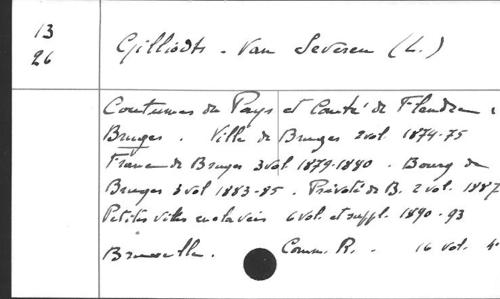 13
26
Gilliodts - Van Severen (L.)
Coutumes du Pays et Comté de Flandre :
Bruges . Ville de Bruges 2 vol. 1874-75
Franc de Bruges 3 vol 1879-1880 . Bourg de
Bruges 3 vol 1883-85 . Prévôté de B. 2 vol. 1887
Petites villes enclavées 6 vol. et suppl. 1890-93
Bruxelles . Comm. R. . 16 vol. 4°